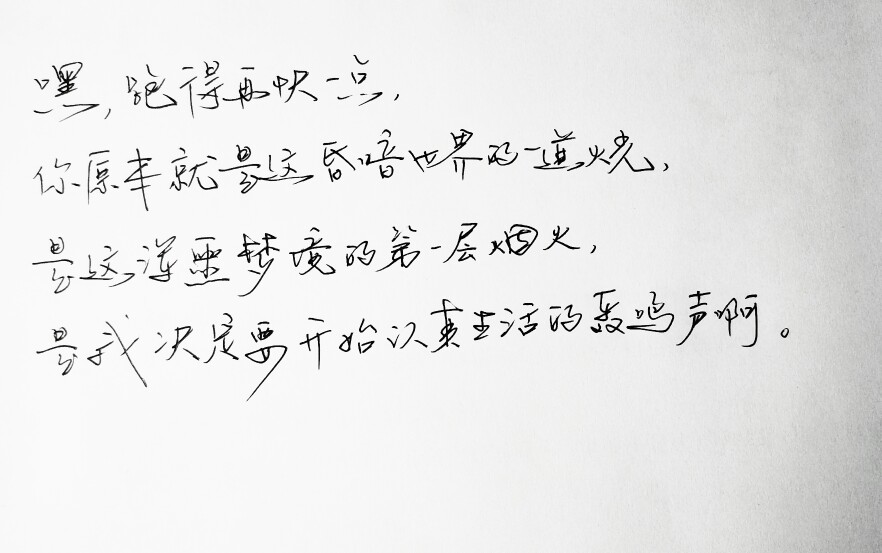 嘿,跑得再快一点,
你原本就是这昏暗世界的一道烧,
是这浑噩梦境的第一层烟火,
是我决定要开始认真生活的轰鸣声啊。